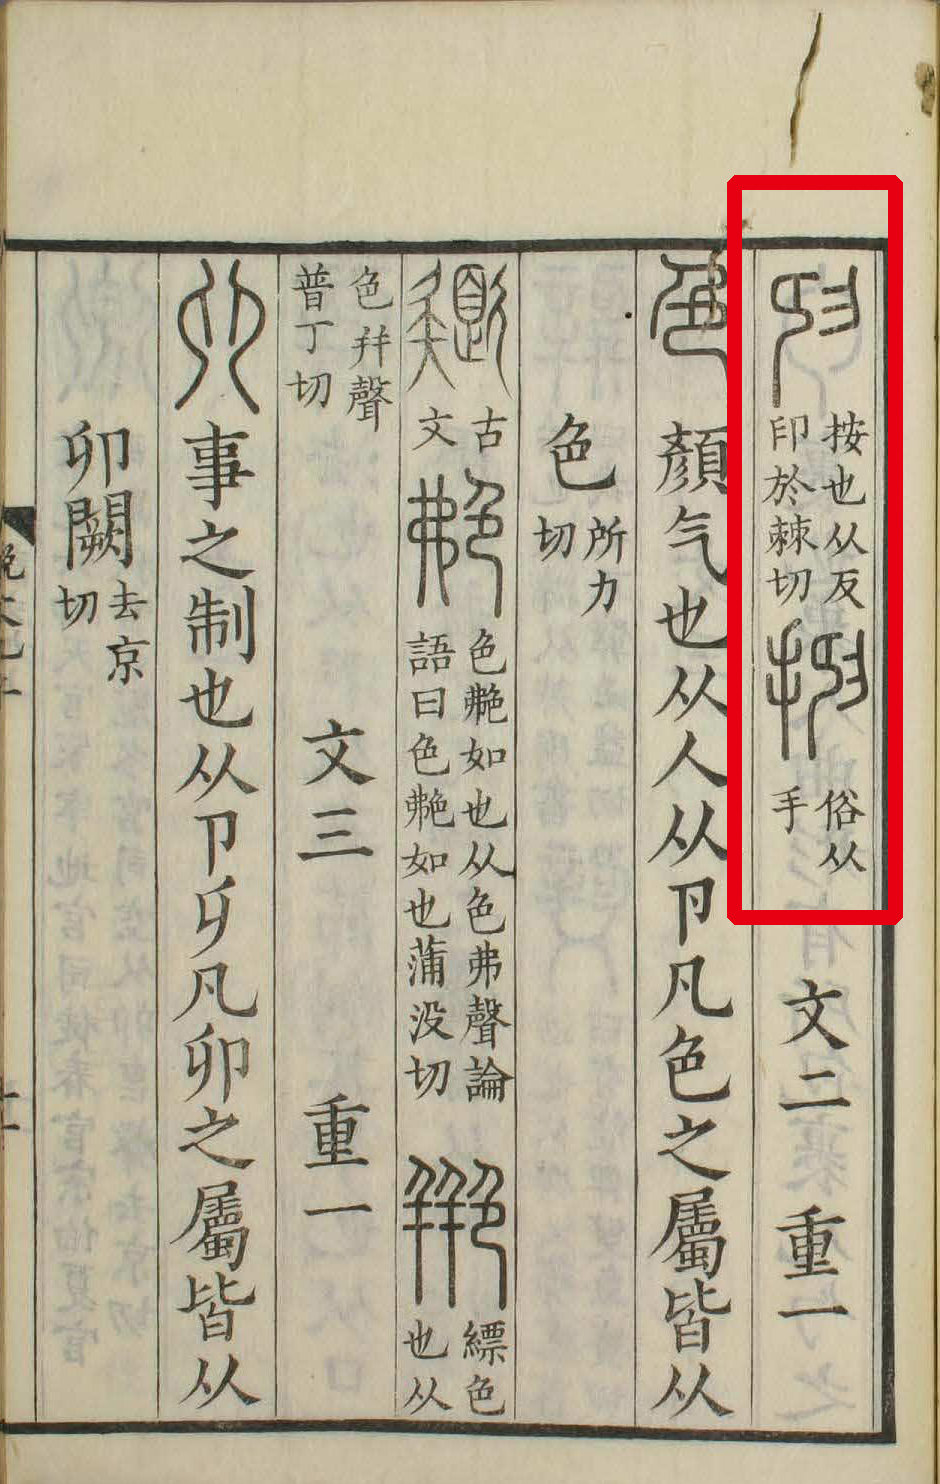 𢑏按也从反印於棘切抑俗从手 文二 重一
色顏气也从人从卪凡色之屬皆从
色所力切
古文艴色艴如也从色弗聲論語曰色艴如也蒲没切艵縹色也从
色幷聲普丁切 文三 重一
𠨍事之制也从卪𠨎凡𠨍之屬皆从
𠨍闕去京切